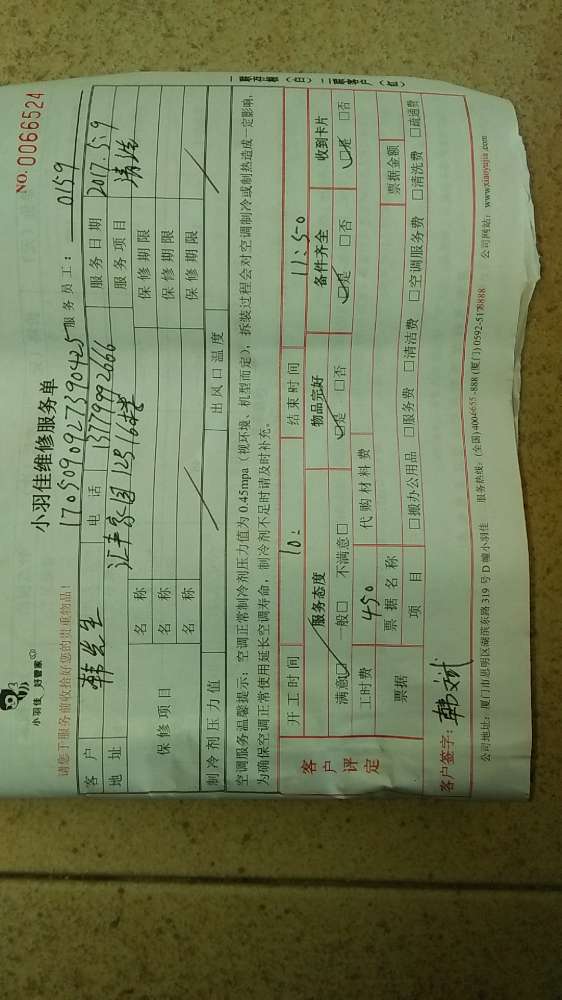 小羽佳 好管家
小羽佳维修服务单
NO. 0066524
请您于服务前收拾好您的贵重物品!
1705090927390425
服务员工: 0159
客户 韩先生 电话 13779992666 服务日期 2017.5.9
地址 汇丰家园125 16楼 服务项目 清洗
保修项目 名称 保修期限
名称 保修期限
名称 保修期限
制冷剂压力值 出风口温度
空调服务温馨提示: 空调正常制冷剂压力值为 0.45mpa (视环境、机型而定), 拆装过程会对空调制冷或制热造成一定影响,
为确保空调正常使用延长空调寿命, 制冷剂不足时请及时补充。
客户评定
开工时间 10: 结束时间 11:50
服务态度 物品完好 备件齐全 收到卡片
满意□ 一般□ 不满意□ □是 □否 □是 □否 □是 □否
工时费 450 代购材料费
票据 票据名称 票据金额
项目 □搬办公用品 □服务费 □清洁费 □空调服务费 □清洗费 □疏通费
客户签字: 韩文斌
公司地址: 厦门市思明区湖滨东路 319 号 D 幢小羽佳 服务热线: (全国) 4006655-888 (厦门) 0592-5178888 公司网站: www.xiaoyujia.com